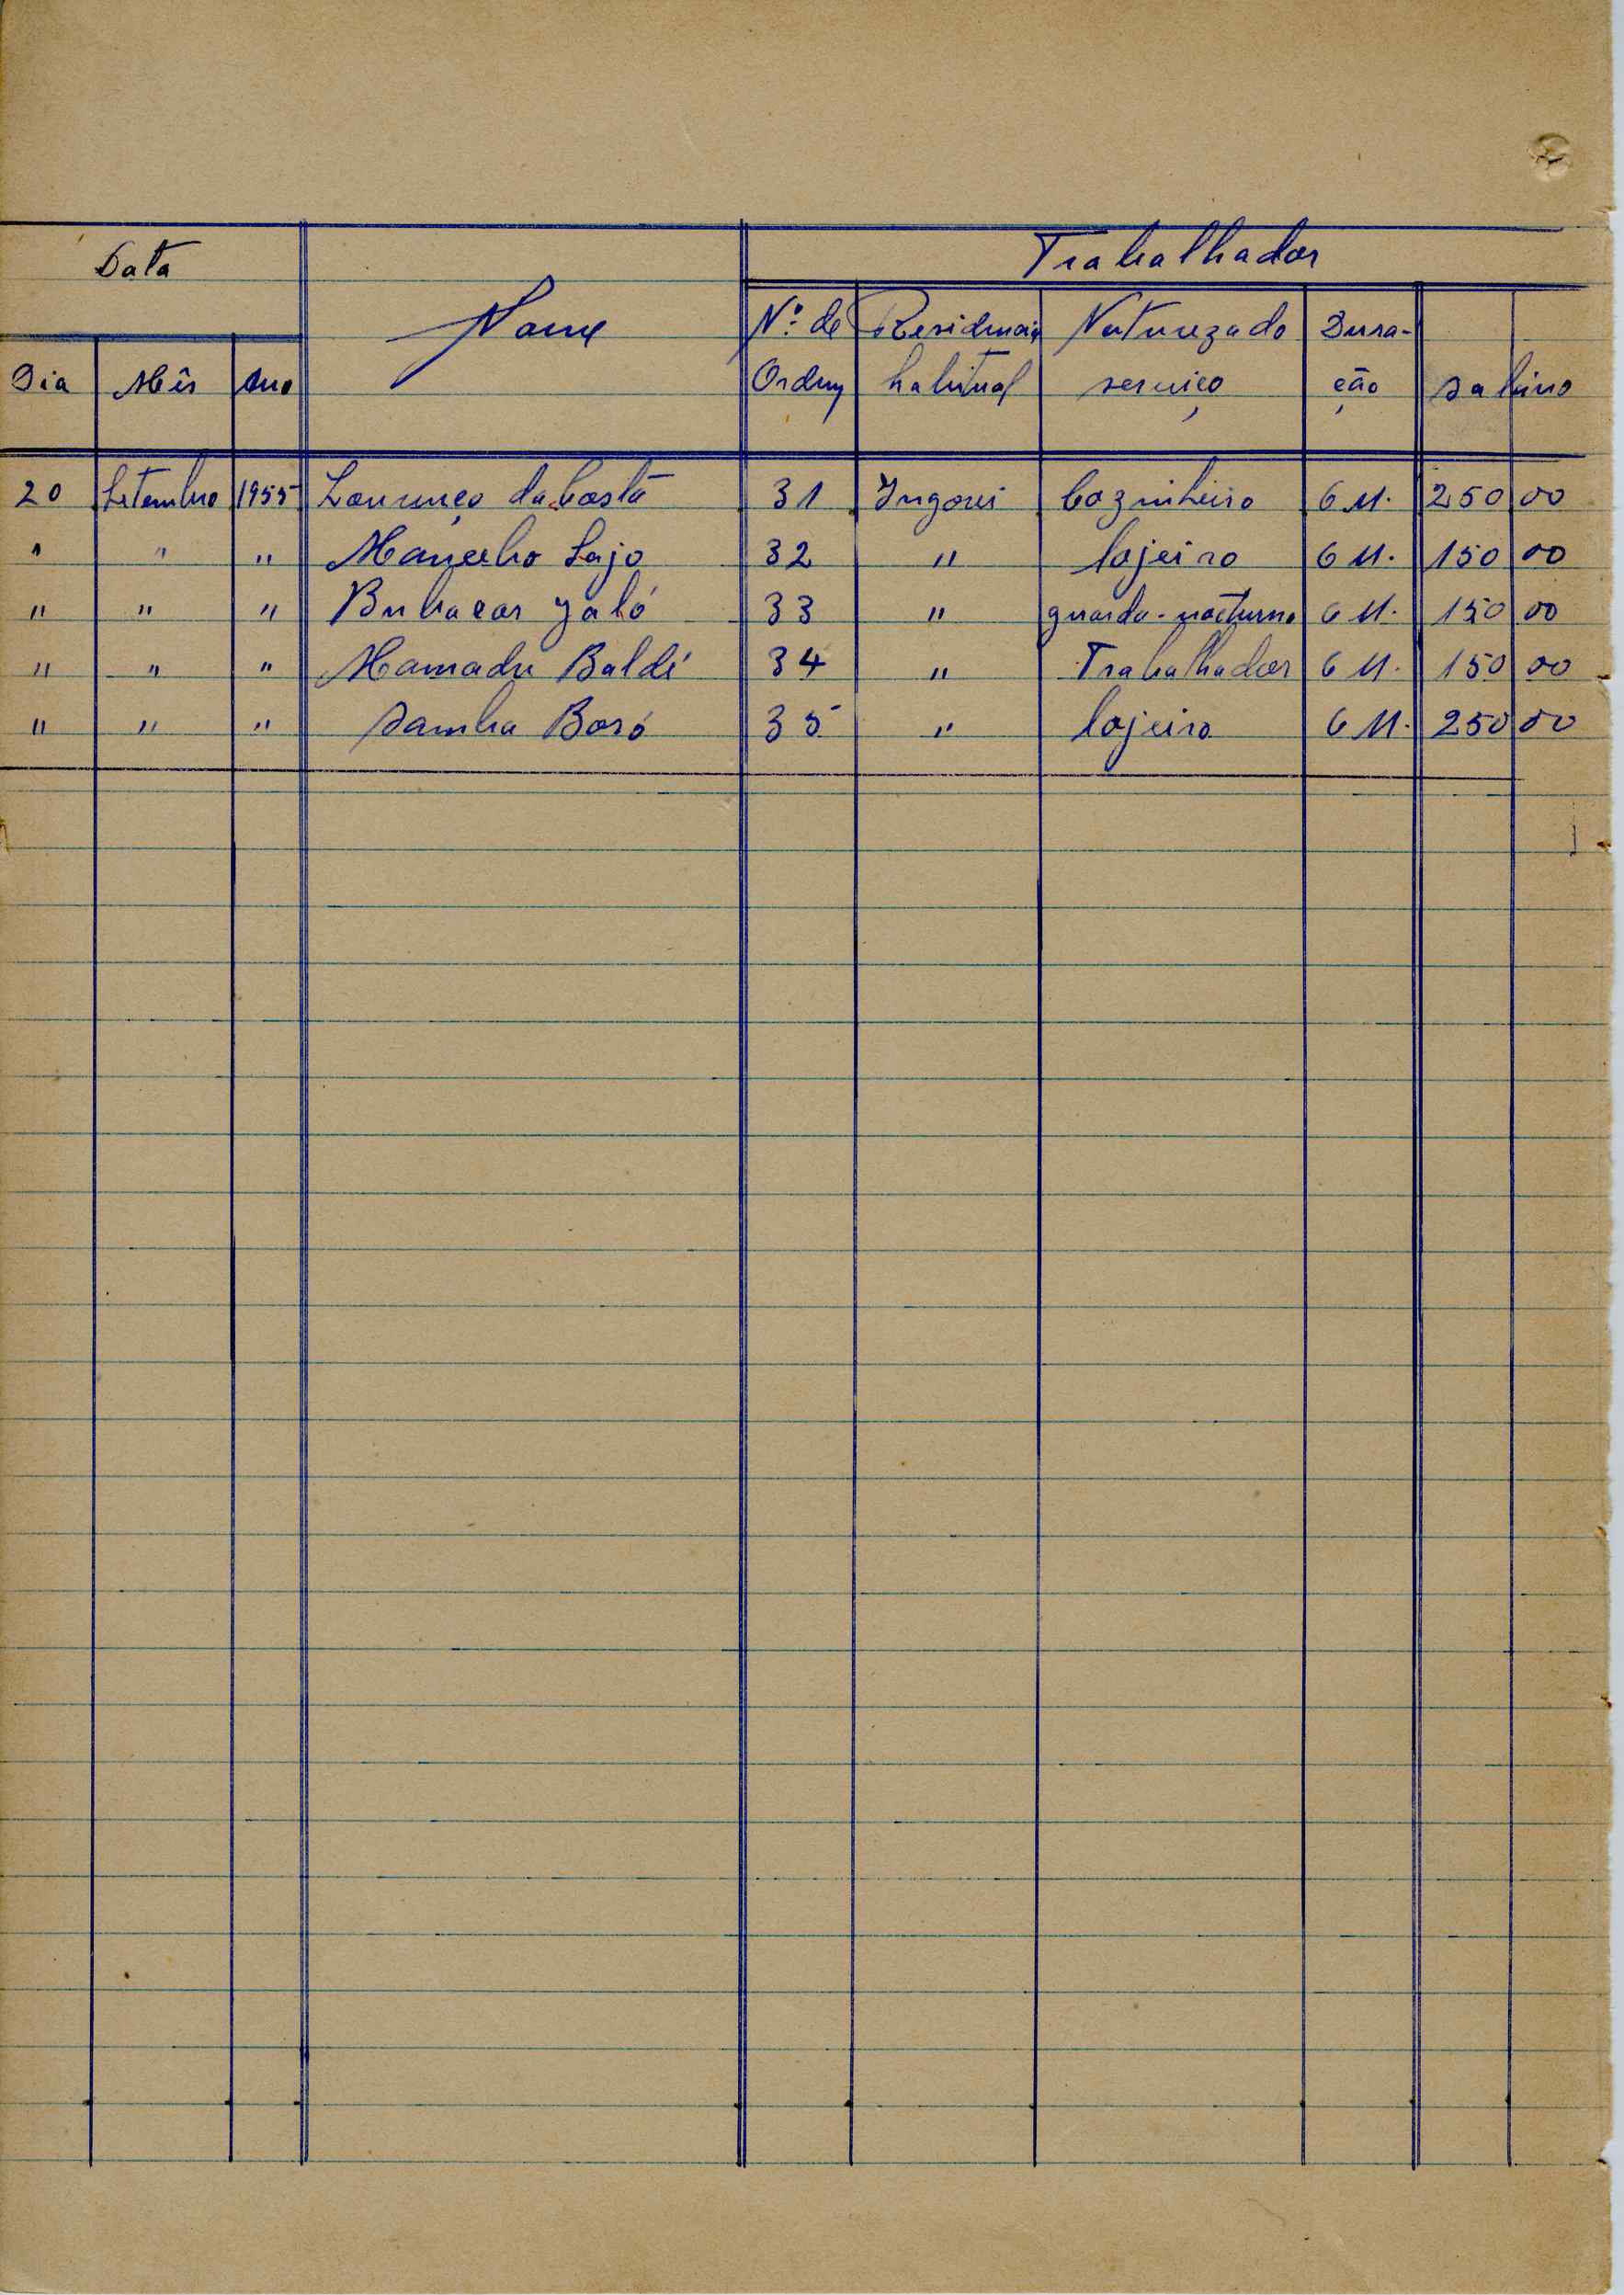 Data
Trabalhador
Nome
Nº de Residencia Natureza do Dura-
Dia Mês Ano Ordem habitual serviço ção Salário
20 Setembro 1955 Lourenço da Costa 31 Ingorei Cozinheiro 6 M. 250 00
" " " Manecho Sajo 32 " lojeiro 6 M. 150 00
" " " Bubacar Jaló 33 " guarda-nocturno 6 M. 150 00
" " " Mamadu Baldé 34 " Trabalhador 6 M. 150 00
" " " Samba Boró 35 " lojeiro 6 M. 250 00